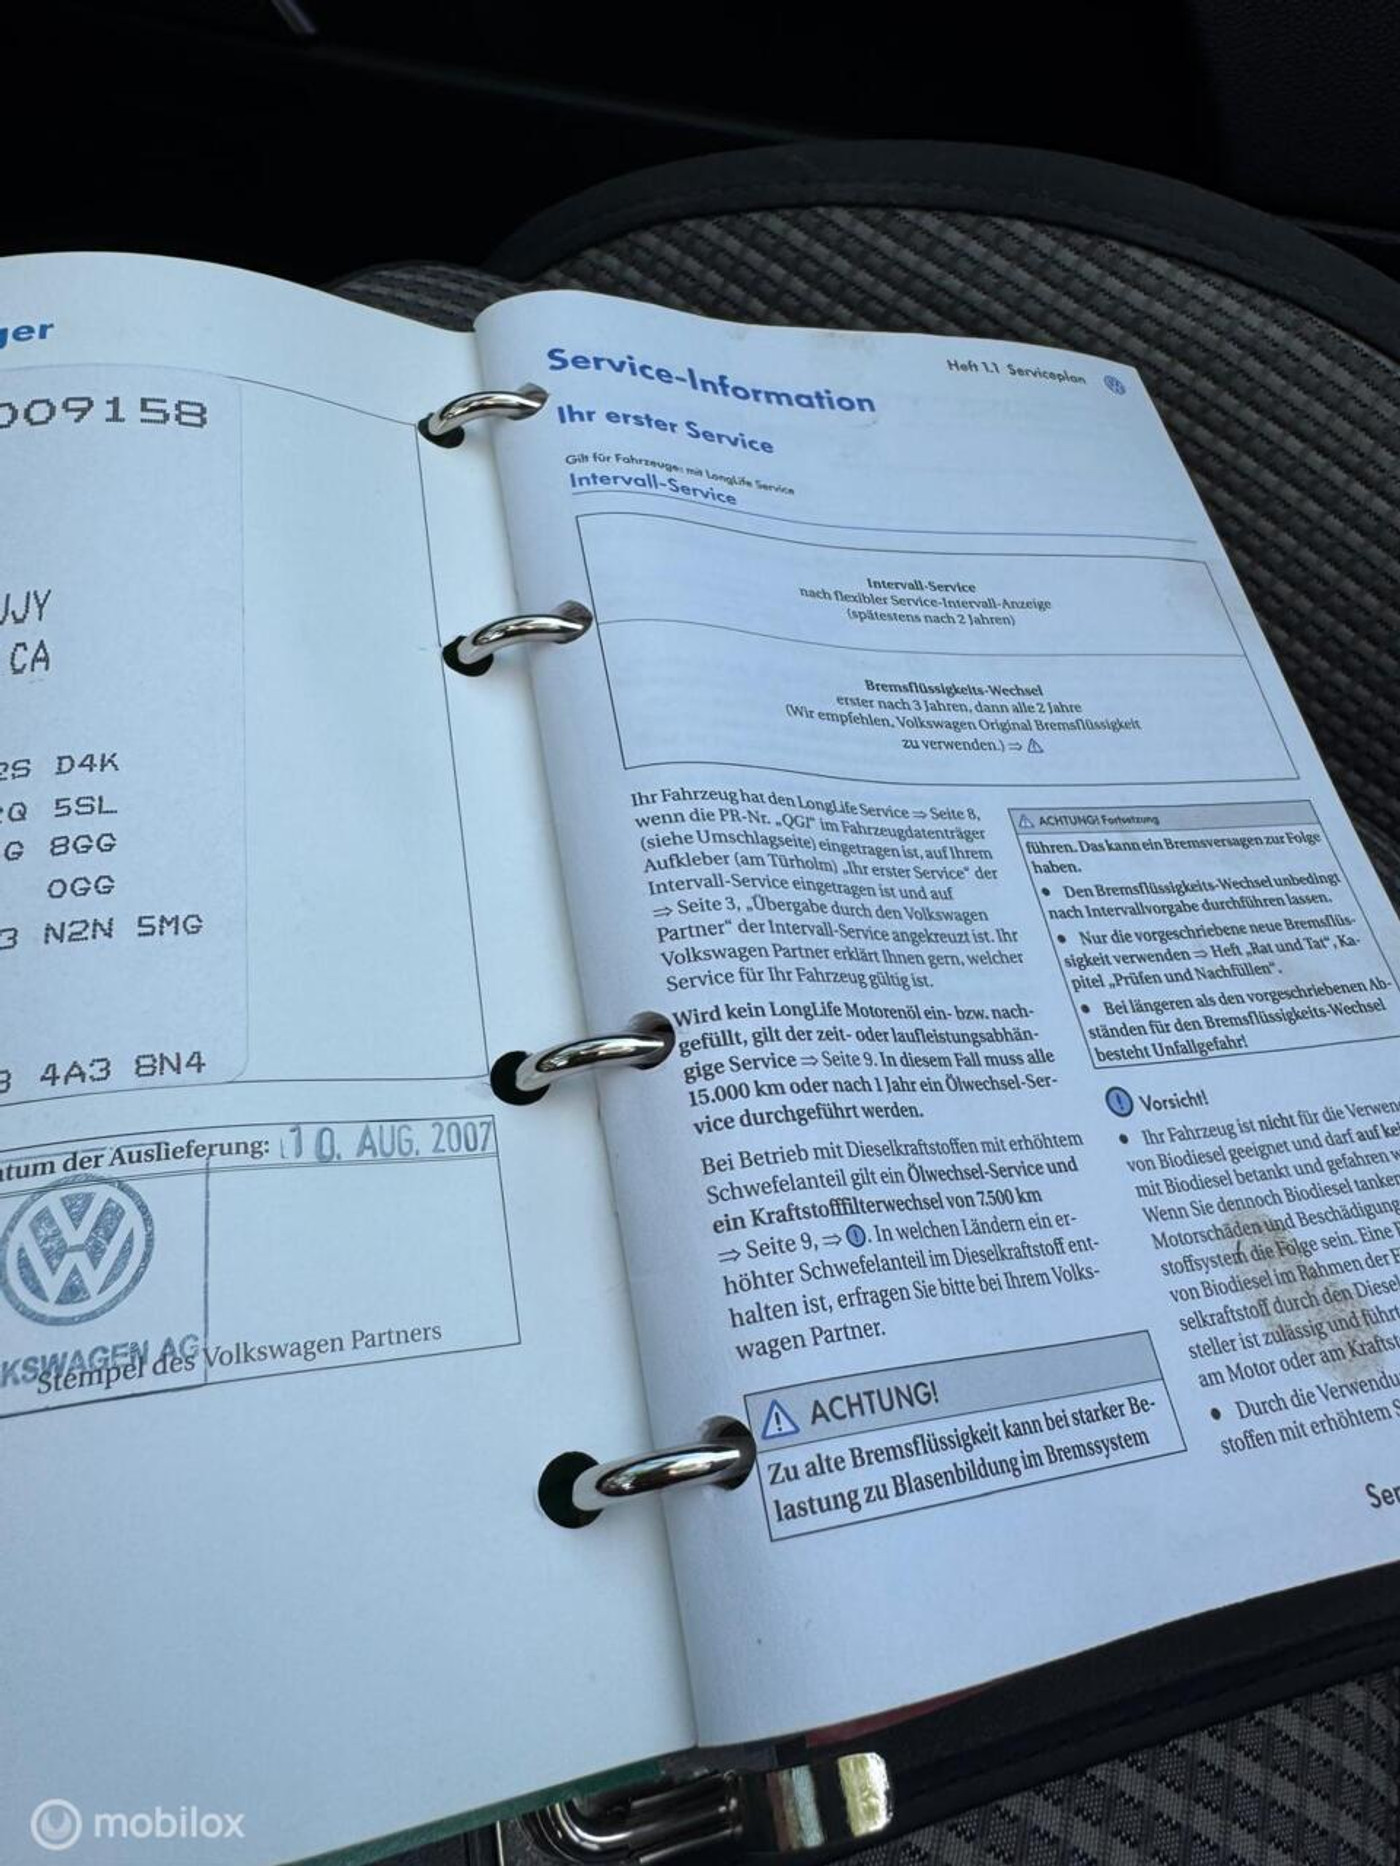 009158
CA
D4K
5SL
G 8GG
0GG
3 N2N 5MG
4A3 8N4
der Auslieferung: 10. AUG. 2007
AG
Stempel des Volkswagen Partners
Service-Information
Heft 1.1 Serviceplan
Ihr erster Service
Gilt für Fahrzeuge: mit LongLife Service
Intervall-Service
Intervall-Service
nach flexibler Service-Intervall-Anzeige
(spätestens nach 2 Jahren)
Bremsflüssigkeits-Wechsel
erster nach 3 Jahren, dann alle 2 Jahre
(Wir empfehlen, Volkswagen Original Bremsflüssigkeit
zu verwenden.) ⇒ ⚠
Ihr Fahrzeug hat den LongLife Service ⇒ Seite 8,
wenn die PR-Nr. „QG1“ im Fahrzeugdatenträger
(siehe Umschlagseite) eingetragen ist, auf Ihrem
Aufkleber (am Türholm) „Ihr erster Service“ der
Intervall-Service eingetragen ist und auf
⇒ Seite 3, „Übergabe durch den Volkswagen
Partner“ der Intervall-Service angekreuzt ist. Ihr
Volkswagen Partner erklärt Ihnen gern, welcher
Service für Ihr Fahrzeug gültig ist.
Wird kein LongLife Motorenöl ein- bzw. nach-
gefüllt, gilt der zeit- oder laufleistungsabhän-
gige Service ⇒ Seite 9. In diesem Fall muss alle
15.000 km oder nach 1 Jahr ein Ölwechsel-Ser-
vice durchgeführt werden.
Bei Betrieb mit Dieselkraftstoffen mit erhöhtem
Schwefelanteil gilt ein Ölwechsel-Service und
ein Kraftstofffilterwechsel von 7.500 km
⇒ Seite 9, ⇒ !. In welchen Ländern ein er-
höhter Schwefelanteil im Dieselkraftstoff ent-
halten ist, erfragen Sie bitte bei Ihrem Volks-
wagen Partner.
⚠ ACHTUNG!
Zu alte Bremsflüssigkeit kann bei starker Be-
lastung zu Blasenbildung im Bremssystem
⚠ ACHTUNG! Fortsetzung
führen. Das kann ein Bremsversagen zur Folge
haben.
• Den Bremsflüssigkeits-Wechsel unbedingt
nach Intervallvorgabe durchführen lassen.
• Nur die vorgeschriebene neue Bremsflüs-
sigkeit verwenden ⇒ Heft „Rat und Tat“, Ka-
pitel „Prüfen und Nachfüllen“.
• Bei längeren als den vorgeschriebenen Ab-
ständen für den Bremsflüssigkeits-Wechsel
besteht Unfallgefahr!
! Vorsicht!
• Ihr Fahrzeug ist nicht für die Verwen
von Biodiesel geeignet und darf auf kei
mit Biodiesel betankt und gefahren w
Wenn Sie dennoch Biodiesel tanken
Motorschäden und Beschädigung
stoffsystem die Folge sein. Eine
von Biodiesel im Rahmen der
selkraftstoff durch den Diese
steller ist zulässig und führt
am Motor oder am Kraftst
• Durch die Verwendu
stoffen mit erhöhtem S
Ser
mobilox